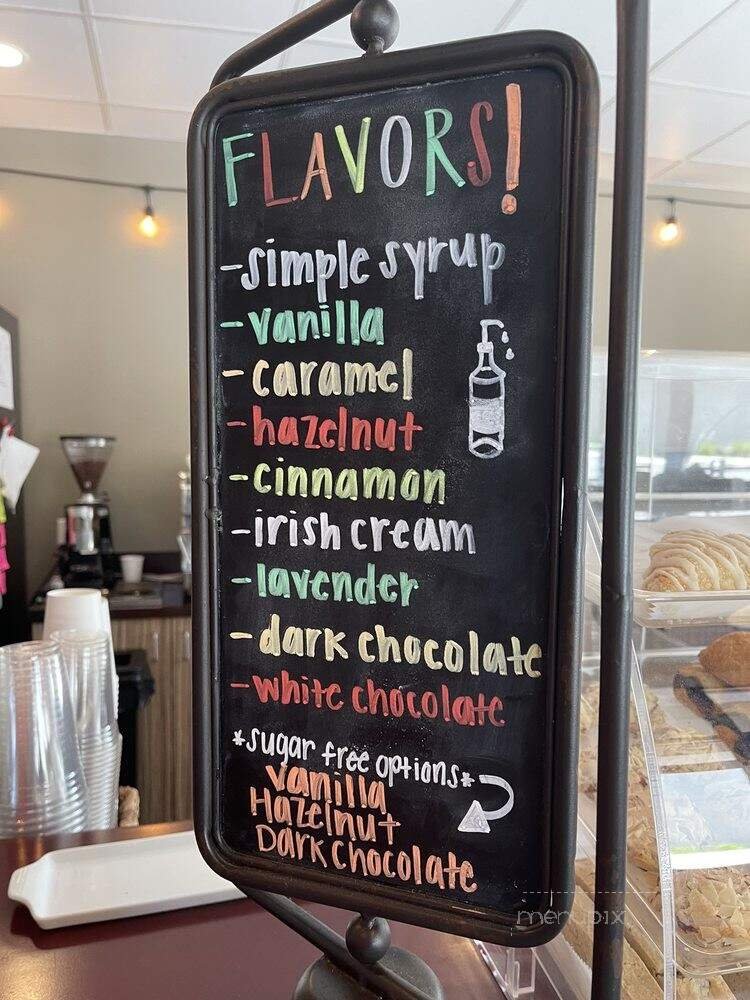 FLAVORS!
-simple syrup
-vanilla
-caramel
-hazelnut
-cinnamon
-irish cream
-lavender
-dark chocolate
-white chocolate
*sugar free options*
vanilla
Hazelnut
Dark chocolate
menupix